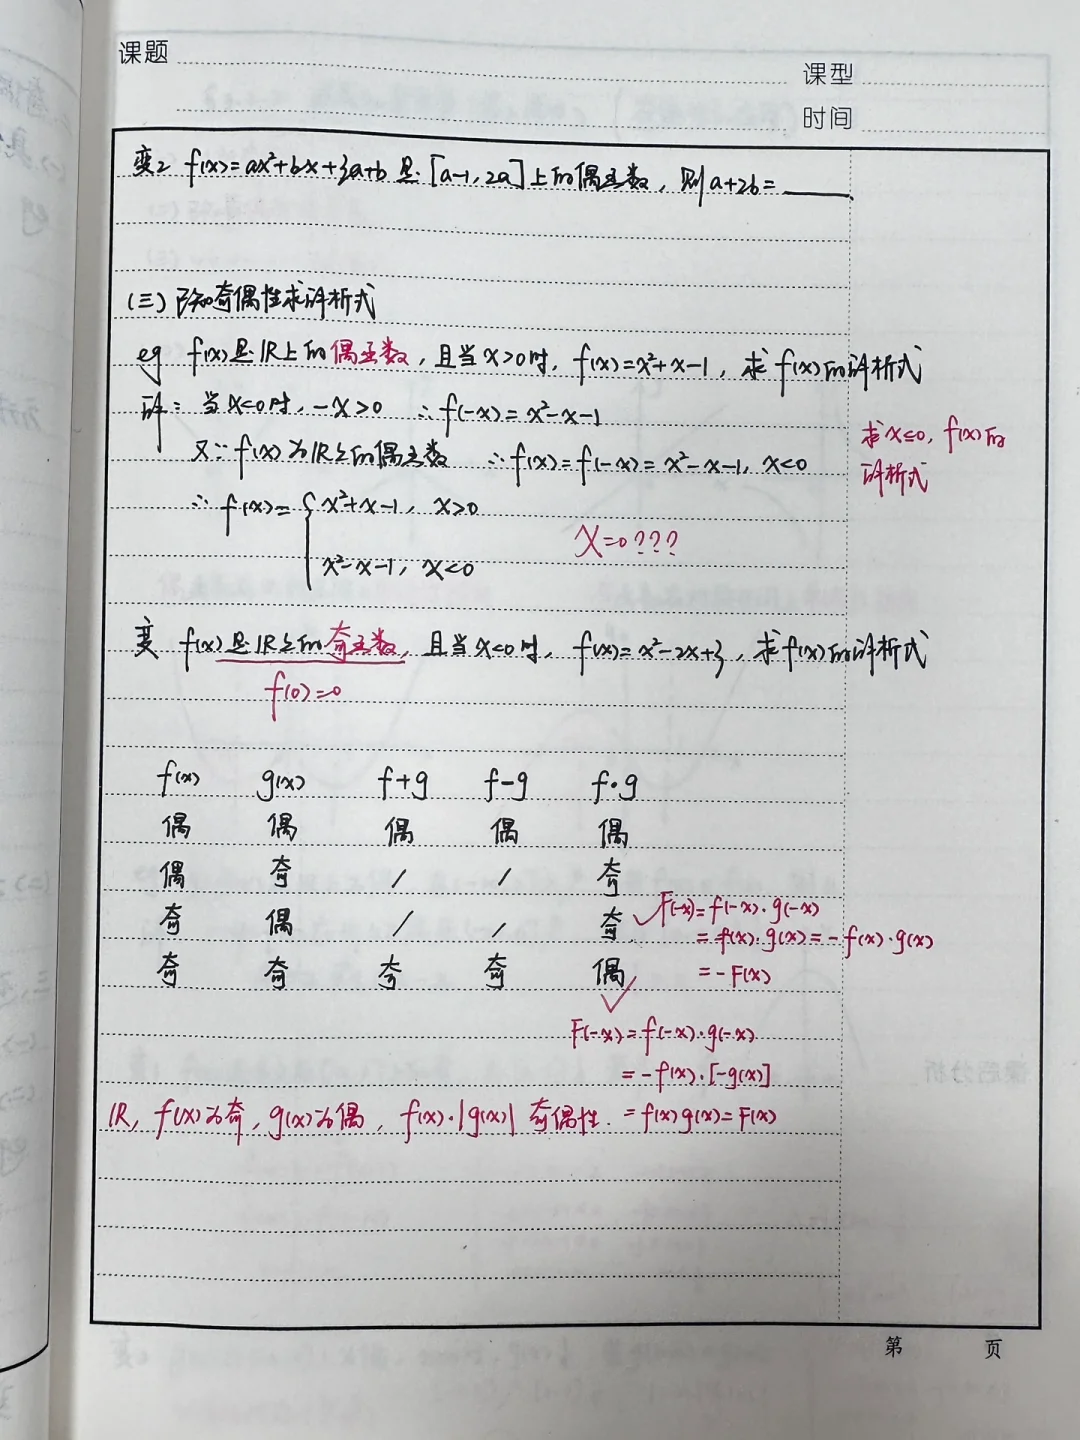 课题
课型
时间
变2 f(x)=ax²+bx+3a+b 是[a-1,2a]上的偶函数，则a+2b=______.
(三)已知奇偶性求解析式
eg f(x)是IR上的偶函数，且当x>0时，f(x)=x²+x-1，求f(x)的解析式
解：当x<0时，-x>0 ∴f(-x)=x²-x-1
求x≤0，f(x)的
又∵f(x)为IR上的偶函数 ∴f(x)=f(-x)=x²-x-1，x<0
解析式
∴f(x)={x²+x-1，x>0
x=0???
x²-x-1，x<0
变 f(x)是IR上的奇函数，且当x<0时，f(x)=x²-2x+3，求f(x)的解析式
f(0)=0
f(x) g(x) f+g f-g f·g
偶 偶 偶 偶 偶
偶 奇 / / 奇
奇 偶 / / 奇 ✓F(-x)=f(-x)·g(-x)
=-f(x)·g(x)=-f(x)·g(x)
奇 奇 奇 奇 偶 =-F(x)
✓
F(-x)=f(-x)·g(-x)
=-f(x)·[-g(x)]
IR，f(x)为奇，g(x)为偶，f(x)·|g(x)| 奇偶性. =f(x)g(x)=F(x)
课后分析
第 页